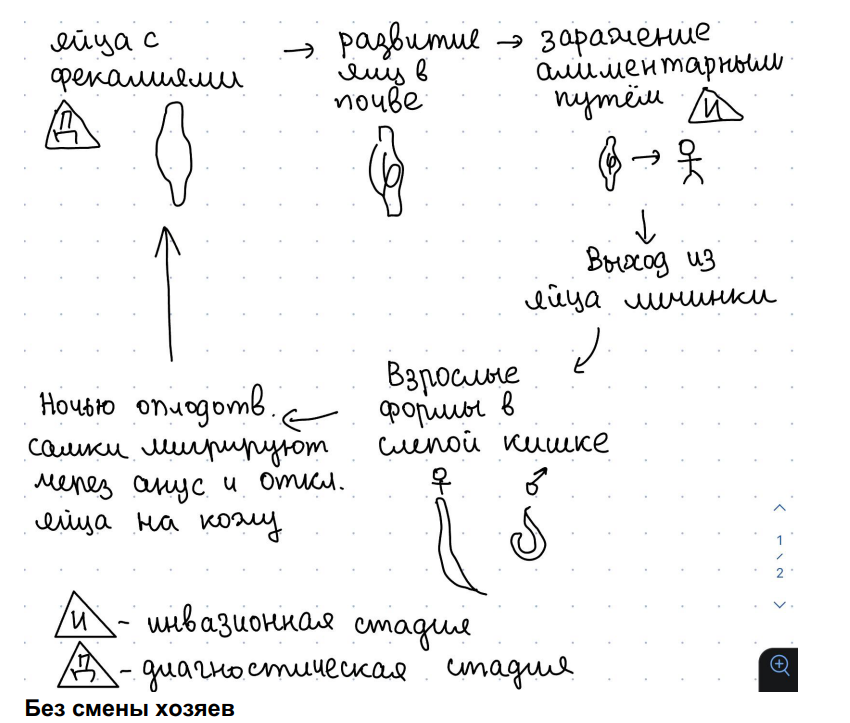 яйца с
фекалиями
Д
→ развитие
яиц в
почве
→ заражение
алиментарным
путём
И
→
Выход из
яйца личинки
Взрослые
формы в
слепой кишке
♀ ♂
Ночью оплодотв.
самки мигрируют
через анус и откл.
яйца на кожу
И - инвазионная стадия
Д - диагностическая стадия
1
/
2
Без смены хозяев